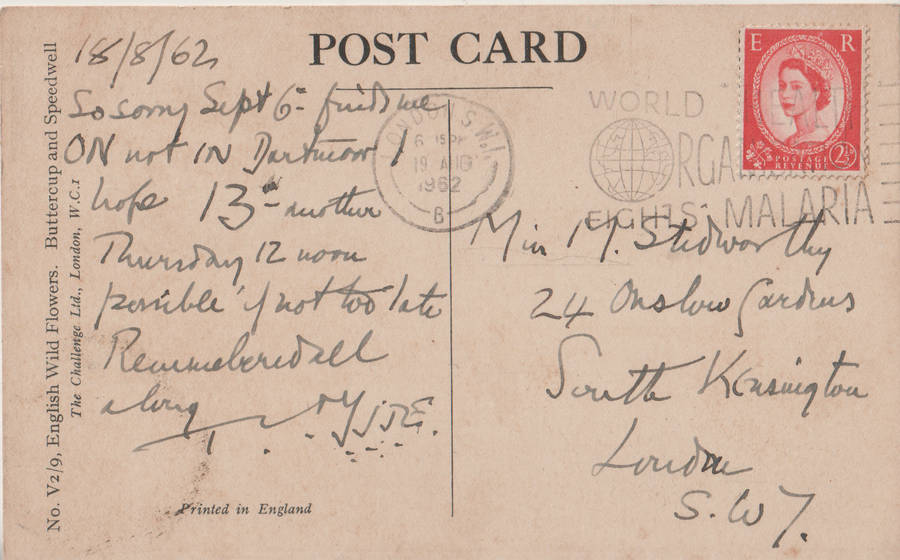 POST CARD
18/8/62
So sorry Sept 6th finds me
ON not IN Dartmoor I
hope 13th another
Thursday 12 noon
possible if not too late
Remembered all
along
Miss M. Stedworthy
24 Onslow Gardens
South Kensington
London
S.W7.
No. V2/9, English Wild Flowers. Buttercup and Speedwell
The Challenge Ltd., London, W.C.1
Printed in England
LONDON S.W.1
6 15PM
19 AUG
1962
B
WORLD
FIGHTS MALARIA
E R
POSTAGE
REVENUE
2½